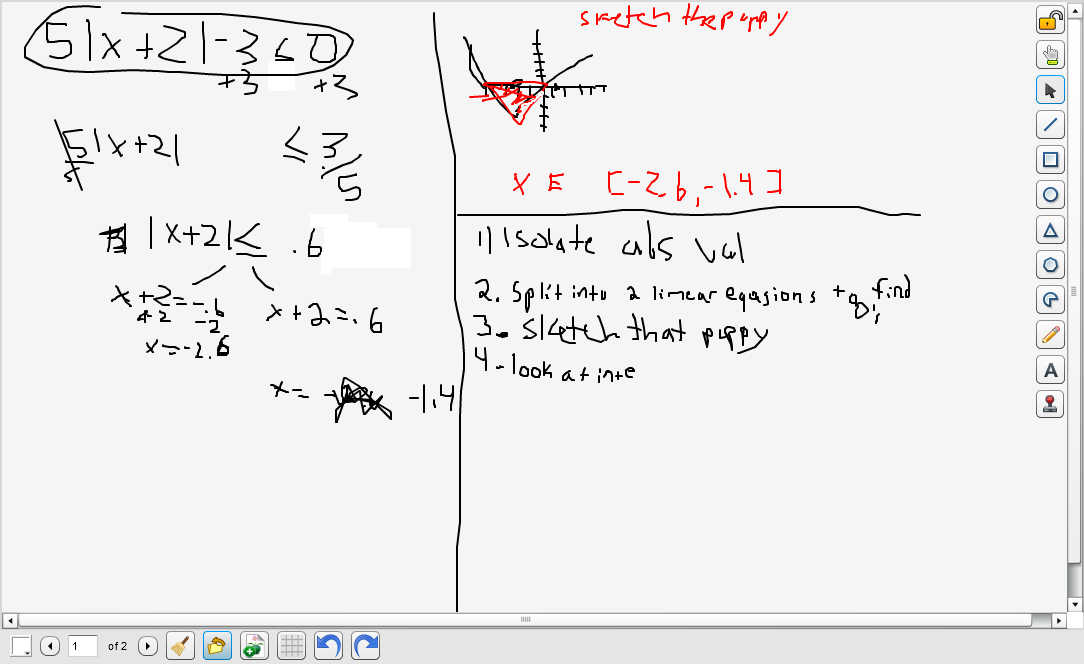 5|x+2|-3≤0
+3 +3
5|x+2| ≤ 3
5 5
|x+2|≤ .6
x+2=-.6 x+2=.6
-2 -2
x=-2.6
x= -1.4
sketch the puppy
x E [-2.6,-1.4]
1) Isolate abs val
2. Split into 2 linear eqasions to find
3. sketch that puppy
4. look at inte
A
1 of 2